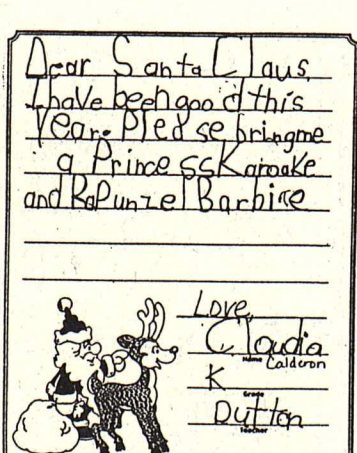 Dear Santa Claus,
I have been good this
Year. Please bring me
a Princess Karoake
and RaPunzel Barbire
Love,
Claudia
Name Calderon
K
Grade
Dutton
Teacher